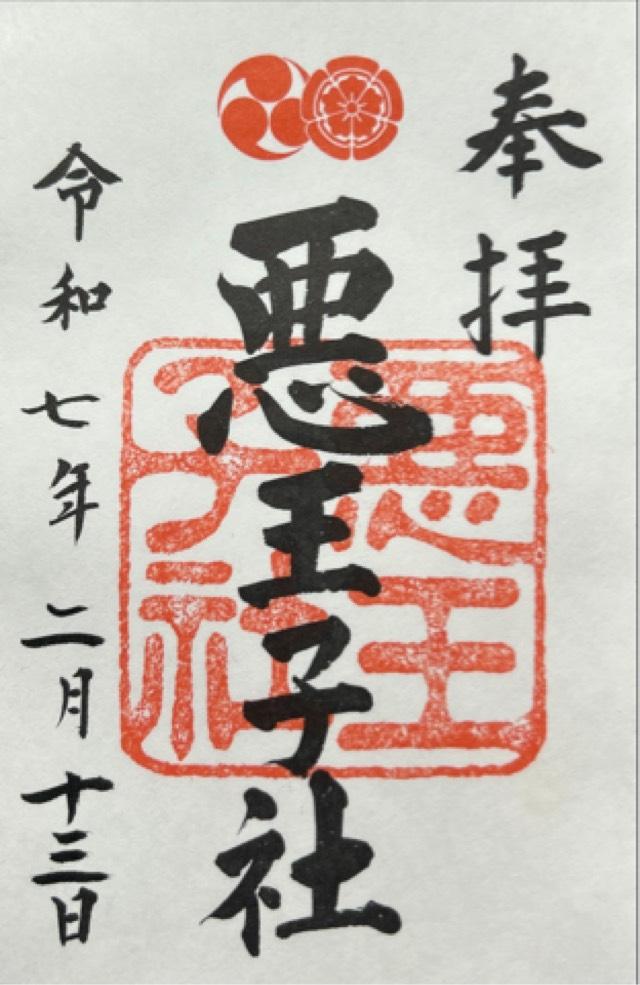 奉拝
悪王子社
悪王子社
令和七年二月十三日